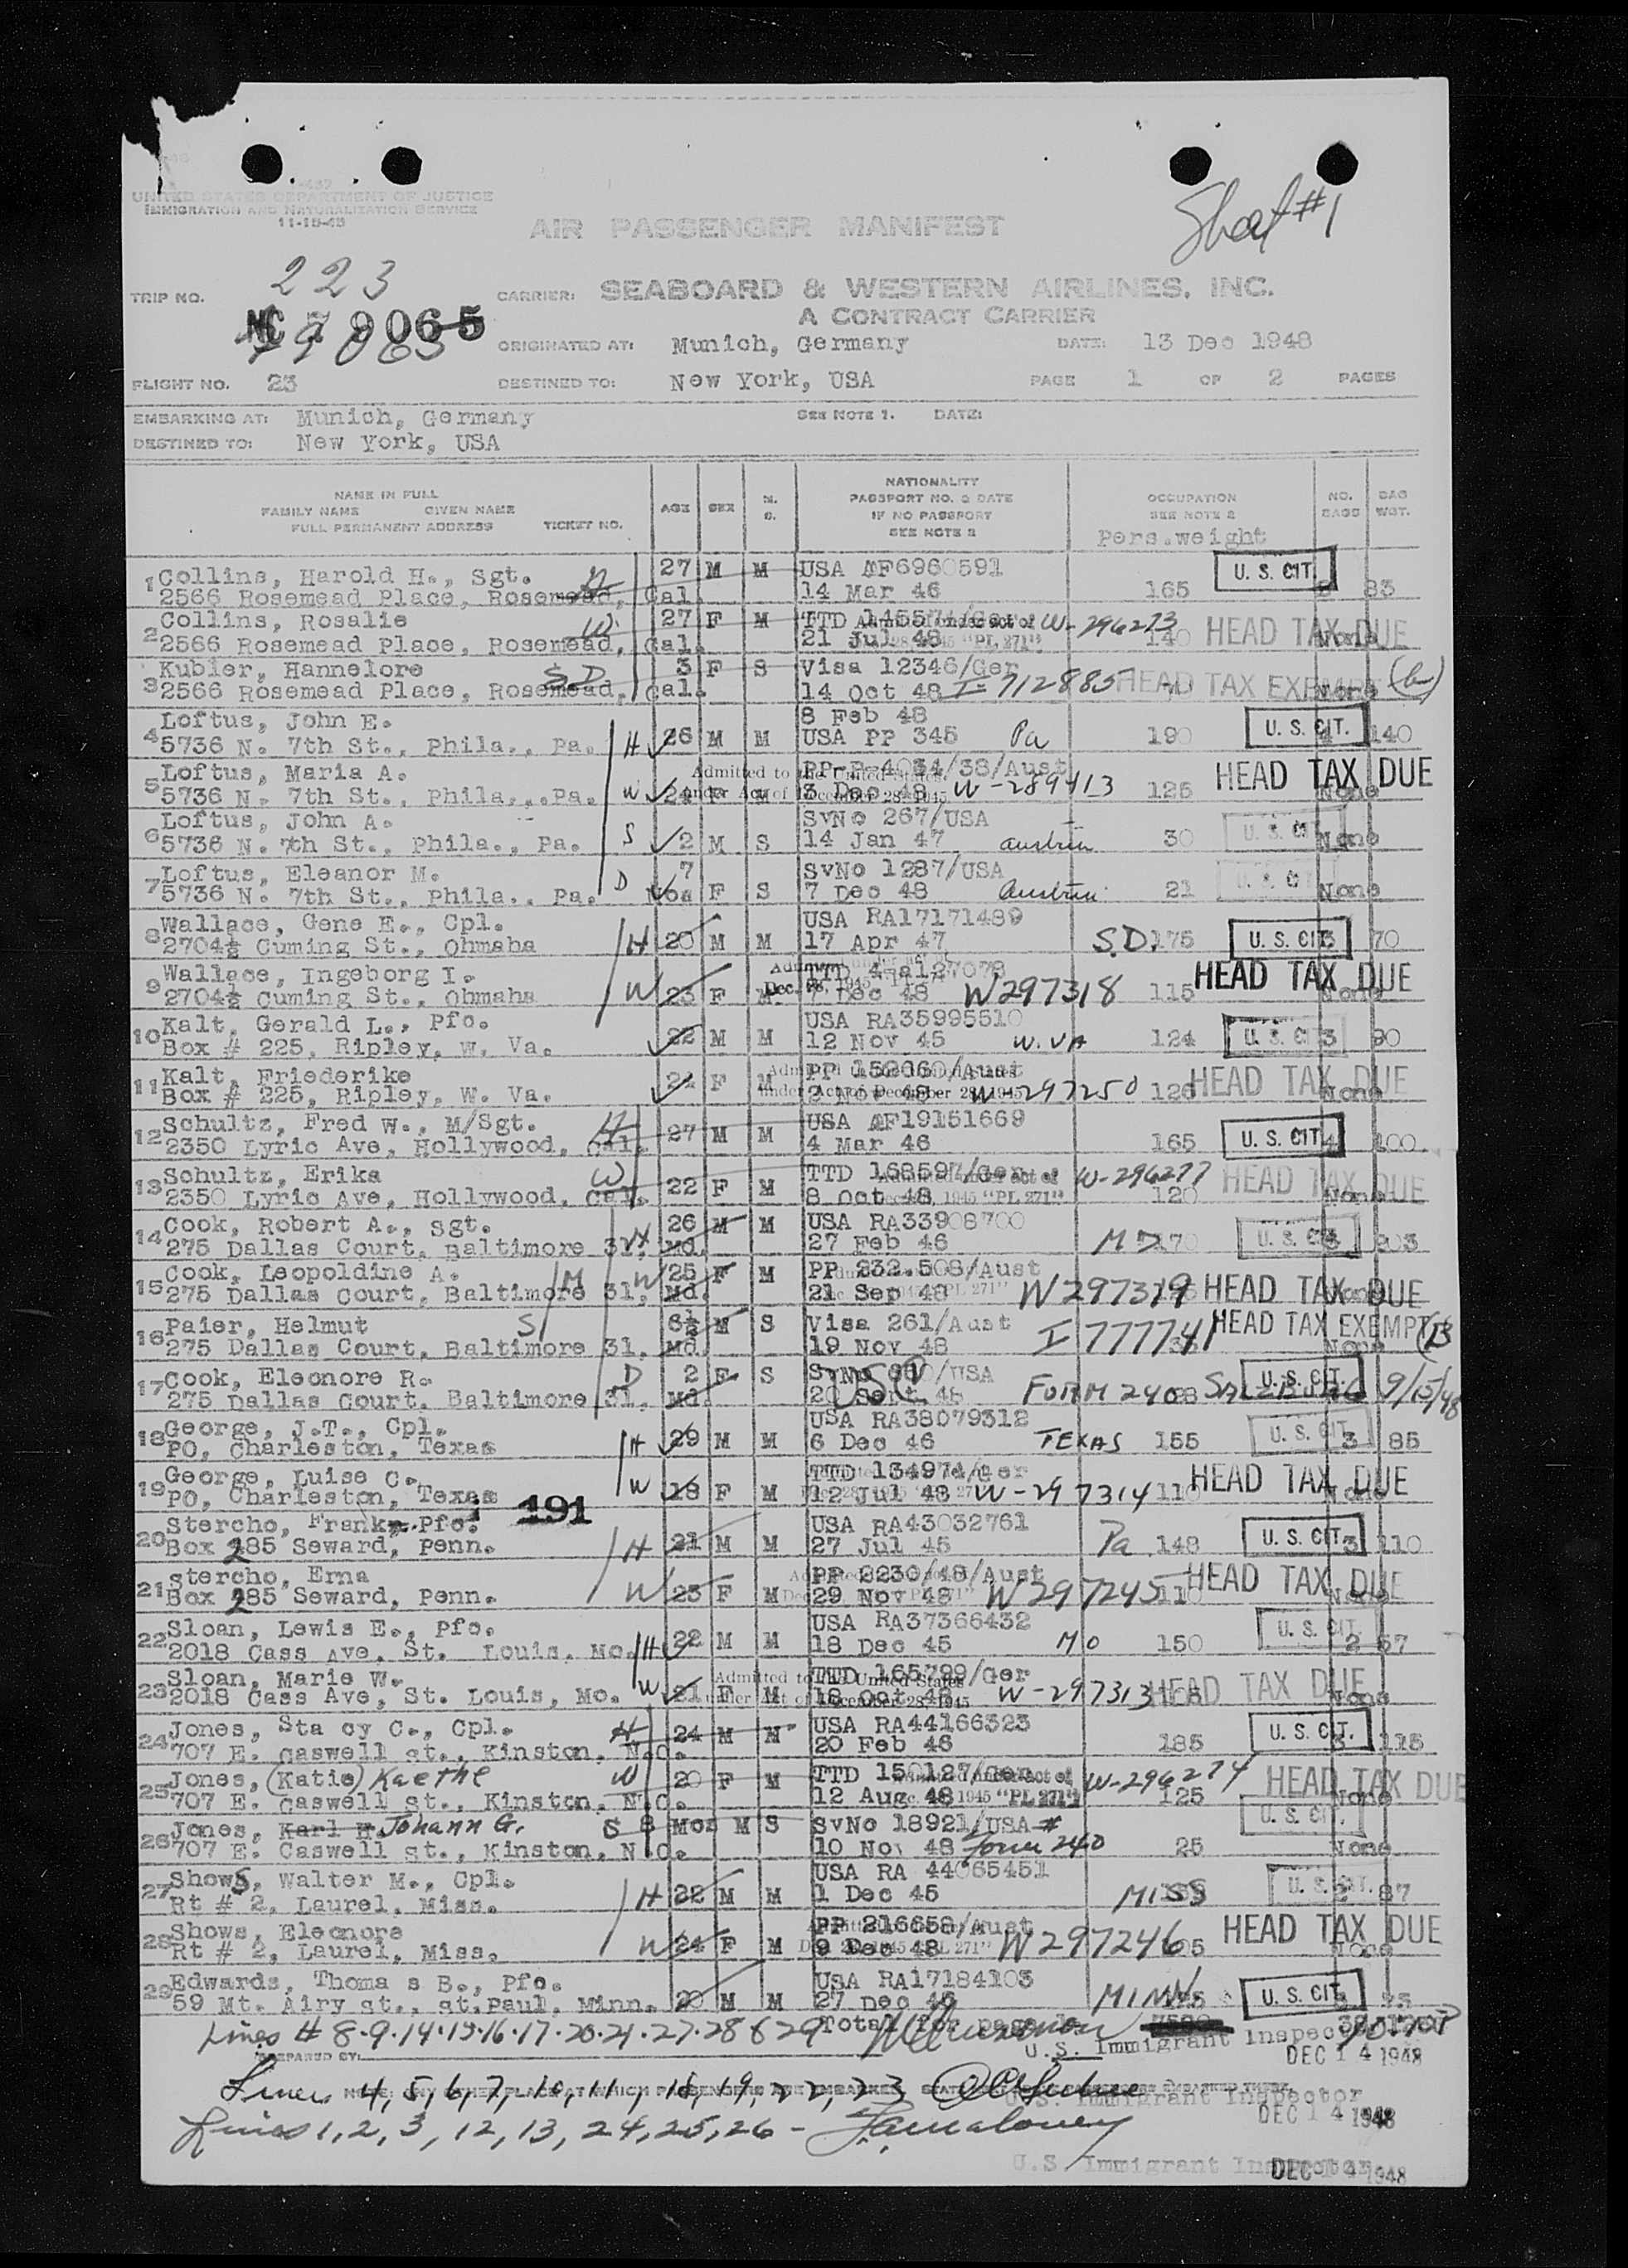 UNITED STATES DEPARTMENT OF JUSTICE
IMMIGRATION AND NATURALIZATION SERVICE
11-15-45
Sheet #1
AIR PASSENGER MANIFEST
TRIP NO. 223
CARRIER: SEABOARD & WESTERN AIRLINES, INC.
A CONTRACT CARRIER
NC 79065
79065
ORIGINATED AT: Munich, Germany DATE: 13 Dec 1948
FLIGHT NO. 23 DESTINED TO: New York, USA PAGE 1 OF 2 PAGES
EMBARKING AT: Munich, Germany SEE NOTE 1. DATE:
DESTINED TO: New York, USA
NAME IN FULL
FAMILY NAME GIVEN NAME
FULL PERMANENT ADDRESS TICKET NO.
AGE SEX M. S.
NATIONALITY
PASSPORT NO. & DATE
IF NO PASSPORT
SEE NOTE 2
OCCUPATION
SEE NOTE 2
Pers.weight
NO. BAGS BAG WGT.
1 Collins, Harold H., Sgt. H 27 M M USA AF6960591 U. S. CIT.
2566 Rosemead Place, Rosemead, Cal. 14 Mar 46 165 83
2 Collins, Rosalie W 27 F M TTD 145571/Ger W-296273 HEAD TAX DUE
2566 Rosemead Place, Rosemead, Cal. 21 Jul 48 "PL 271" 140 None
3 Kubier, Hannelore SD 3 F S Visa 12346/Ger
2566 Rosemead Place, Rosemead, Cal. 14 Oct 48 I-712885 HEAD TAX EXEMPT None
4 Loftus, John E. 8 Feb 48
5736 N. 7th St., Phila., Pa. H 26 M M USA PP 345 Pa 190 U. S. CIT. 4 140
5 Loftus, Maria A. Admitted to the United States PP-P-4034/38/Aust HEAD TAX DUE
5736 N. 7th St., Phila., Pa. W 24 F M under Act of December 28, 1945 3 Dec 48 W-289413 125 None
6 Loftus, John A. SvNo 267/USA
5736 N. 7th St., Phila., Pa. S 2 M S 14 Jan 47 Austria 30 U. S. CIT. None
7 Loftus, Eleanor M. D 7 SvNo 1287/USA
5736 N. 7th St., Phila., Pa. Mos F S 7 Dec 48 Austria 21 U. S. CIT. None
8 Wallace, Gene E., Cpl. USA RA17171489
2704½ Cuming St., Ohmaha H 20 M M 17 Apr 47 S.D. 175 U. S. CIT. 3 70
9 Wallace, Ingeborg I. HEAD TAX DUE
2704½ Cuming St., Ohmaha W 23 F M 7 Dec 48 W297318 115 None
10 Kalt, Gerald L., Pfc. USA RA35995510
Box # 225, Ripley, W. Va. 22 M M 12 Nov 45 W. VA 124 U. S. CIT. 3 90
11 Kalt, Friederike PP 152060/Aust HEAD TAX DUE
Box # 225, Ripley, W. Va. 21 F M 2 Nov 48 W-297250 126 None
12 Schultz, Fred W., M/Sgt. H 27 M M USA AF19151669
2350 Lyric Ave, Hollywood, Cal. 4 Mar 46 165 U. S. CIT. 4 100
13 Schultz, Erika W 22 F M TTD 168597/Ger W-296277 HEAD TAX DUE
2350 Lyric Ave, Hollywood, Cal. 8 Oct 48 1945 "PL 271" 120 None
14 Cook, Robert A., Sgt. 26 M M USA RA33908700
275 Dallas Court, Baltimore 31, Md. H 27 Feb 46 MD 170 U. S. CIT. 203
15 Cook, Leopoldine A. M W 25 F M PP 232.508/Aust
275 Dallas Court, Baltimore 31, Md. 21 Sep 48 W297319 HEAD TAX DUE None
16 Paier, Helmut S 6½ M S Visa 261/Aust I 777741 HEAD TAX EXEMPT
275 Dallas Court, Baltimore 31, Md. 19 Nov 48 None
17 Cook, Eleonore R. D 2 F S USC U. S. CIT.
275 Dallas Court, Baltimore 31, Md. 20 Sept. 48 FORM 240 28 SALZBURG 9/15/48
18 George, J.T., Cpl. USA RA38079312
PO, Charleston, Texas H 29 M M 6 Dec 46 TEXAS 155 U. S. CIT. 3 85
19 George, Luise C. TTD 134974/Ger HEAD TAX DUE
PO, Charleston, Texas W 18 F M 12 Jul 48 W-297314 110 None
191
20 Stercho, Frank, Pfc. USA RA43032761
Box 285 Seward, Penn. H 21 M M 27 Jul 45 Pa 148 U. S. CIT. 3 110
21 Stercho, Erna PP 2230/48/Aust HEAD TAX DUE
Box 285 Seward, Penn. W 23 F M 29 Nov 48 W297245 110 None
22 Sloan, Lewis E., Pfc. USA RA37366432
2018 Cass Ave, St. Louis, Mo. H 22 M M 18 Dec 45 MO 150 U. S. CIT. 2 57
23 Sloan, Marie W. Admitted to the United States TTD 165799/Ger
2018 Cass Ave, St. Louis, Mo. W 21 F M under Act of December 28, 1945 18 Oct 48 W-297313 HEAD TAX DUE None
24 Jones, Sta cy C., Cpl. H 24 M M USA RA44166323
707 E. Caswell St., Kinston, N.C. 20 Feb 46 185 U. S. CIT. 3 115
25 Jones, (Katie) Kaethe W 20 F M TTD 150127/Ger W-296274 HEAD TAX DUE
707 E. Caswell St., Kinston, N.C. 12 Aug 48 1945 "PL 271" 125 None
26 Jones, Karl H. Johann G. S 8 Mos M S SvNo 18921/USA # U. S. CIT.
707 E. Caswell St., Kinston, N.C. 10 Nov 48 Form 240 25 None
27 Shows, Walter M., Cpl. USA RA 44065451
Rt # 2, Laurel, Miss. H 22 M M 1 Dec 45 MISS U. S. CIT. 2 87
28 Shows, Eleonore PP 216658/Aust HEAD TAX DUE
Rt # 2, Laurel, Miss. W 24 F M 9 Dec 48 W297246 None
29 Edwards, Thoma s B., Pfc. USA RA17184103
59 Mt. Airy St., St.Paul, Minn. 20 M M 27 Dec 46 MINN. U. S. CIT.
Lines # 8.9.14.15.16.17.20.21.27.28 & 29 Total for page
U.S. Immigrant Inspector
PREPARED BY: DEC 14 1948
Lines 4, 5, 6, 7, 10, 11, 18, 19, 22, 23
U.S. Immigrant Inspector
DEC 14 1948
Lines 1, 2, 3, 12, 13, 24, 25, 26 -
U.S. Immigrant Inspector
DEC 14 1948